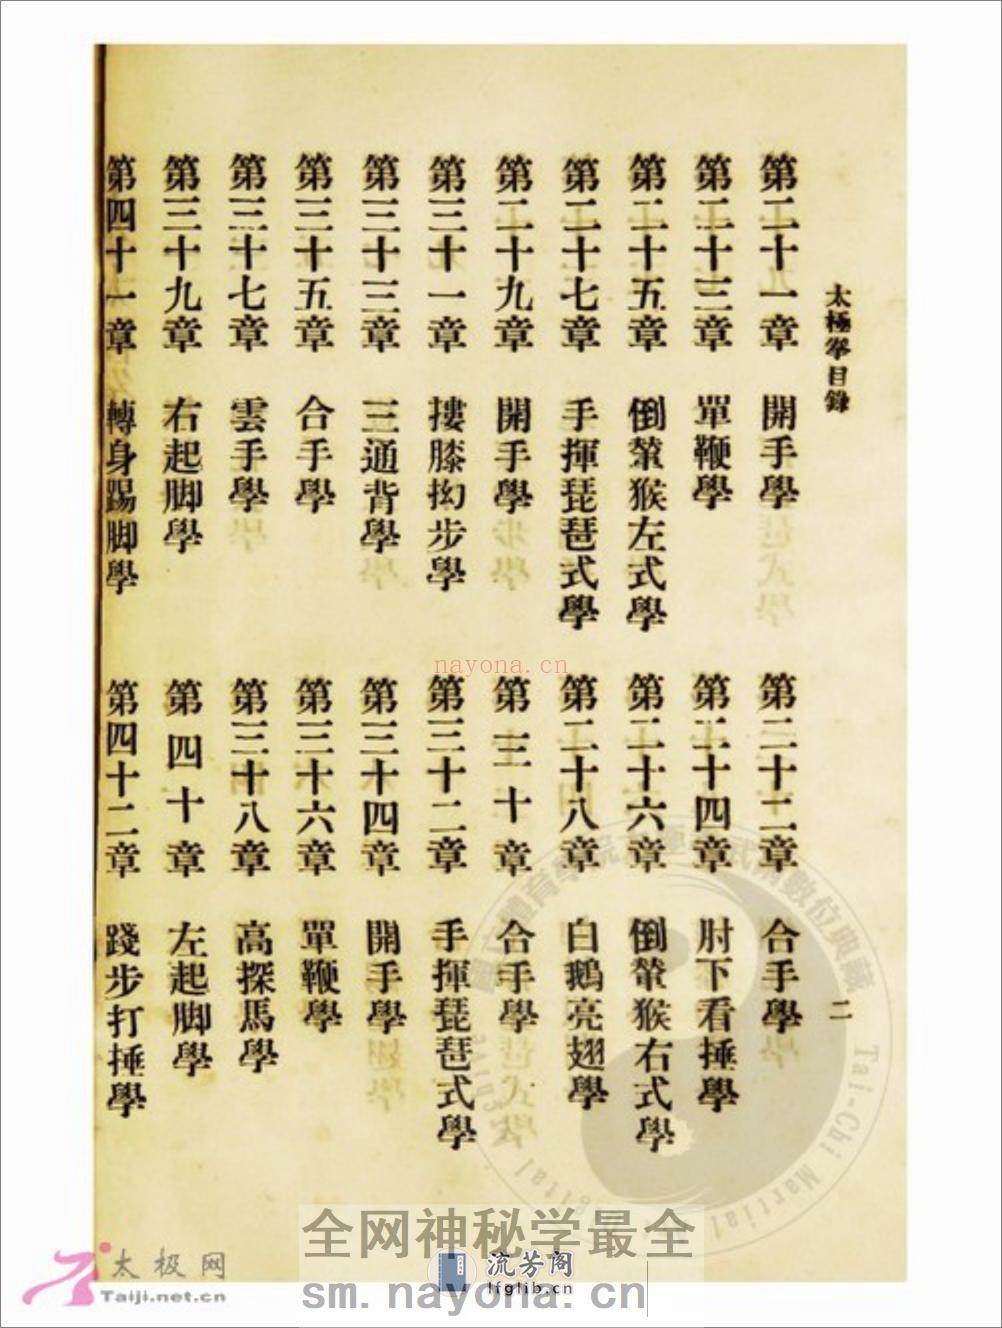 太極拳目錄
二
第二十一章 開手學
第二十二章 合手學
第二十三章 單鞭學
第二十四章 肘下看捶學
第二十五章 倒輦猴左式學
第二十六章 倒輦猴右式學
第二十七章 手揮琵琶式學
第二十八章 白鵝亮翅學
第二十九章 開手學
第三十章 合手學
第三十一章 摟膝拗步學
第三十二章 手揮琵琶式學
第三十三章 三通背學
第三十四章 開手學
第三十五章 合手學
第三十六章 單鞭學
第三十七章 雲手學
第三十八章 高探馬學
第三十九章 右起脚學
第四十章 左起脚學
第四十一章 轉身踢脚學
第四十二章 踐步打捶學
nayona.cn
數位典藏
Tai-Chi Martial
Digital
全网神秘学最全
sm.nayona.cn
流芳阁
lfglib.cn
太极网
Taiji.net.cn